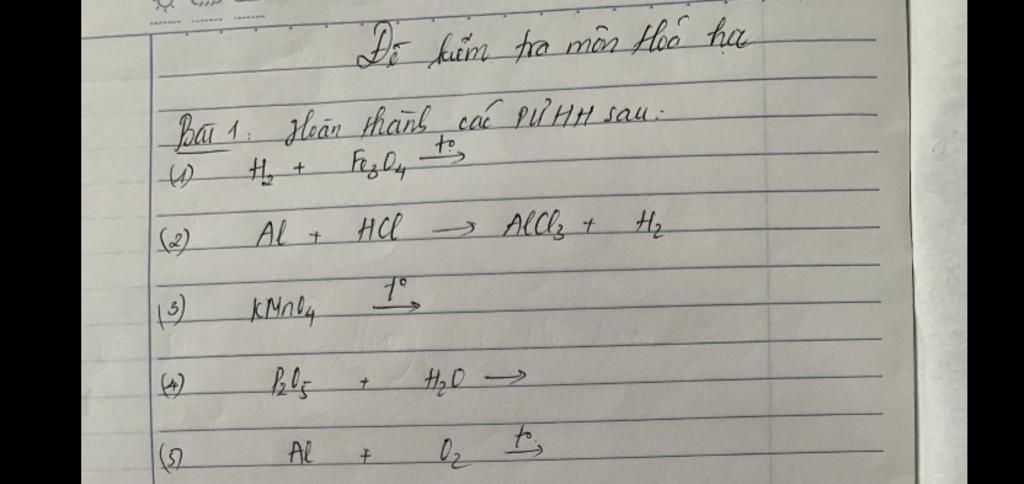 Đề kiểm tra môn Hoá học
Bài 1: Hoàn thành các PƯHH sau:
(1) H₂ + Fe₃O₄ →t°
(2) Al + HCl → AlCl₃ + H₂
(3) KMnO₄ →t°
(4) P₂O₅ + H₂O →
(5) Al + O₂ →t°